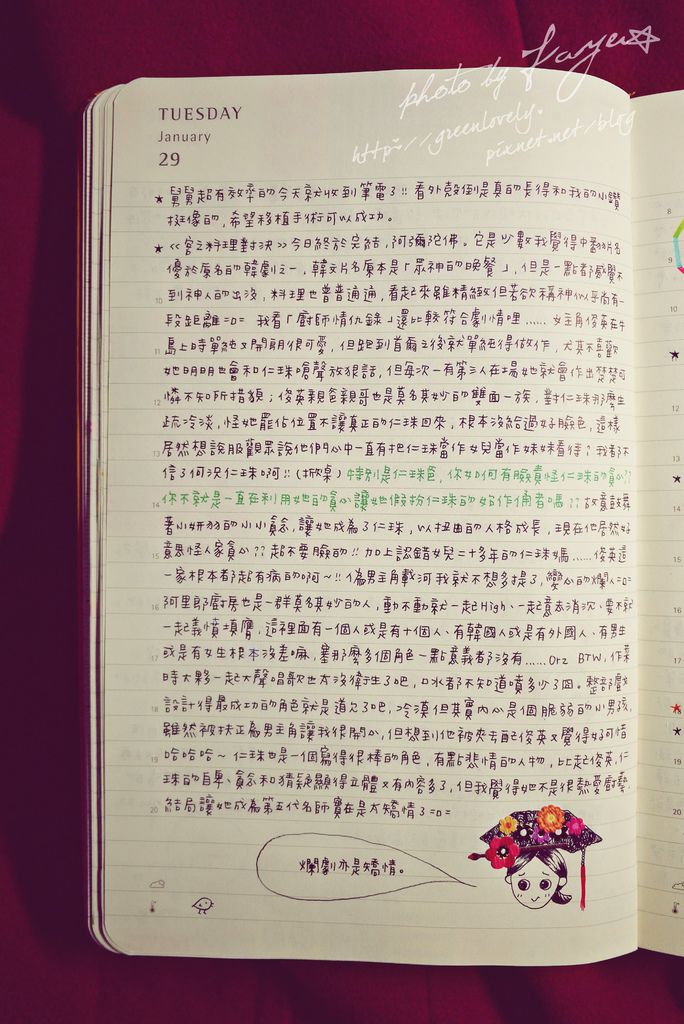 photo by Kayer☆
http://greenlovely.
pixnet.net/blog
TUESDAY
January
29
★ 舅舅超有效率的今天就收到筆電了!! 看外殼倒是真的長得和我的小鑽
挺像的,希望移植手術可以成功。
★ <<食之料理對決>>今日終於完結,阿彌陀佛。它是少數我覺得中翻片名
優於原名的韓劇之一,韓文片名原本是「眾神的晚餐」,但是一點都感覺不
到神人的出沒,料理也普普通通,看起來雖精緻但若欲稱神似乎尚有一
段距離=口= 我看「廚師情仇錄」還比較符合劇情哩...... 女主角俊英在牛
島上時單純又開朗很可愛,但跑到首爾之後就單純得做作,尤其不喜歡
她明明也會和仁珠嗆聲放狠話,但每次一有第三人在場她就會作出楚楚可
憐不知所措貌;俊英親爸親哥也是莫名其妙的雙面一族,對仁珠那麼生
疏冷淡,怪她霸佔位置不讓真正的仁珠回來,根本沒給過好臉色,這樣
居然想說服觀眾說他們心中一直有把仁珠當作女兒當作妹妹看待?我都不
信了何況仁珠啊!!(掀桌) 特別是仁珠爸,你如何有臉責怪仁珠的貪心??
你不就是一直在利用她的貪心讓她假扮仁珠的始作俑者嗎??故意鼓舞
著小妍羽的小小貪念,讓她成為了仁珠,以扭曲的人格成長,現在他居然好
意思怪人家貪心??超不要臉的!!加上認錯女兒二十多年的仁珠媽......俊英這
一家根本都超有病的啊~!! 偽男主角載河我就不想多提了,變心的爛人=口=
阿里郎廚房也是一群莫名其妙的人,動不動就一起High、一起意志消沉、要不就
一起義憤填膺,這裡面有一個人或是有十個人、有韓國人或是有外國人、有男生
或是有女生根本沒差嘛,塞那麼多個角色一點意義都沒有......Orz BTW,作菜
時大夥一起大聲唱歌也太沒衛生了吧,口水都不知道噴多少了囧。整部戲
設計得最成功的角色就是道允了吧,冷漠但其實內心是個脆弱的小男孩,
雖然被扶正為男主角讓我很開心,但想到他被來去自己俊英又覺得好可惜
哈哈哈~ 仁珠也是一個寫得很棒的角色,有點悲情的人物,比起俊英,仁
珠的自卑、貪念和猜疑顯得立體又有內容多了,但我覺得她不是很熱愛廚藝,
結局讓她成為第五代名師實在是太矯情了=口=
爛劇亦是矯情。